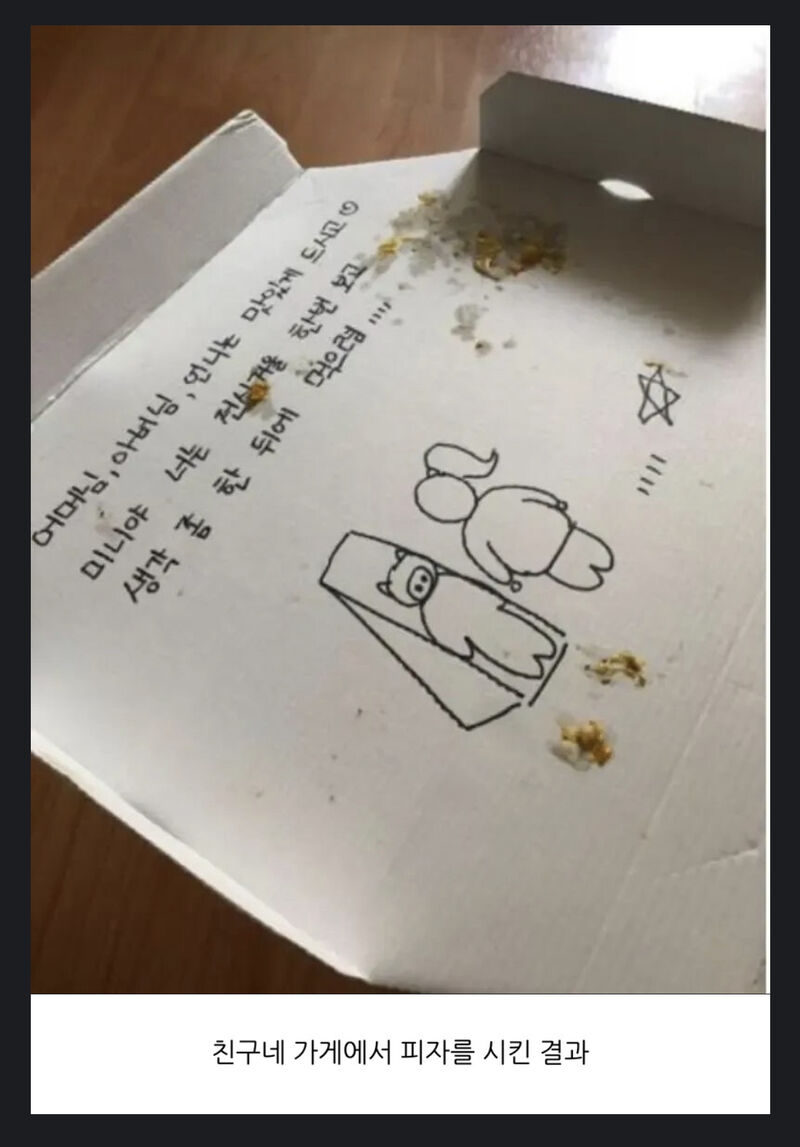 어머님, 아버님, 언니는 맛있게 드시고
미니야 너는 전신거울 한번 보고
생각 좀 한 뒤에 먹으렴 ....
친구네 가게에서 피자를 시킨 결과